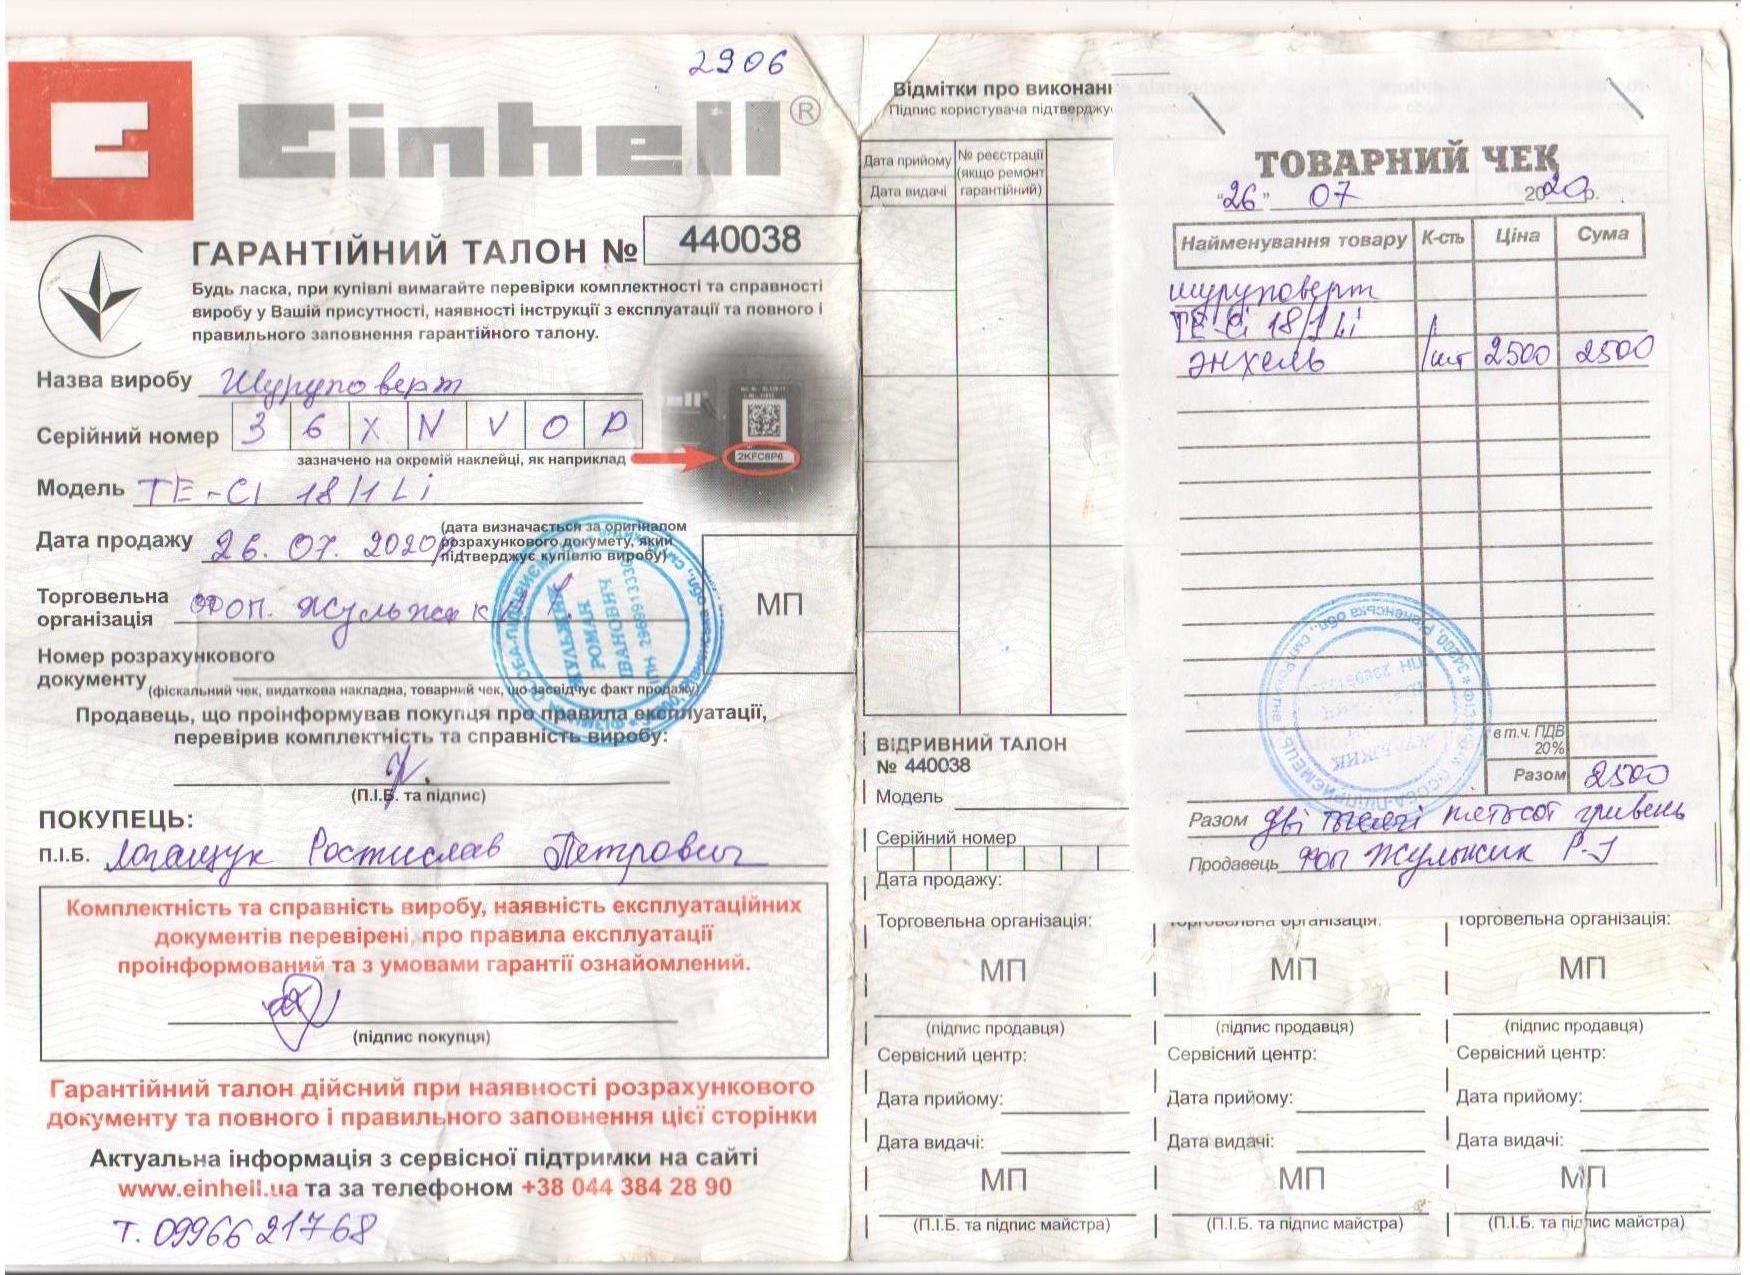 2906
Einhell®
ГАРАНТІЙНИЙ ТАЛОН № 440038
Будь ласка, при купівлі вимагайте перевірки комплектності та справності
виробу у Вашій присутності, наявності інструкції з експлуатації та повного і
правильного заповнення гарантійного талону.
Назва виробу Шуруповерт
Серійний номер 3 6 X N V O P
зазначено на окремій наклейці, як наприклад
2KFC8P6
Модель TE-CI 18/1 Li
Дата продажу 26.07.2020р
(дата визначається за оригіналом
розрахункового документу, який
підтверджує купівлю виробу)
Торговельна
організація ФОП. Жульжик
МП
Номер розрахункового
документу
(фіскальний чек, видаткова накладна, товарний чек, що засвідчує факт продажу)
Продавець, що проінформував покупця про правила експлуатації,
перевірив комплектність та справність виробу:
(П.І.Б. та підпис)
ЖУЛЬЖИК
РОМАН
ІВАНОВИЧ
ПОКУПЕЦЬ:
П.І.Б. Логащук Ростислав Петрович
Комплектність та справність виробу, наявність експлуатаційних
документів перевірені, про правила експлуатації
проінформований та з умовами гарантії ознайомлений.
(підпис покупця)
Гарантійний талон дійсний при наявності розрахункового
документу та повного і правильного заповнення цієї сторінки
Актуальна інформація з сервісної підтримки на сайті
www.einhell.ua та за телефоном +38 044 384 28 90
Т. 0996621768
Відмітки про виконанн
Підпис користувача підтверджу
Дата прийому
Дата видачі
№ реєстрації
(якщо ремонт
гарантійний)
ВІДРИВНИЙ ТАЛОН
№ 440038
Модель
Серійний номер
Дата продажу:
Торговельна організація:
МП
(підпис продавця)
Сервісний центр:
Дата прийому:
Дата видачі:
МП
(П.І.Б. та підпис майстра)
ТОВАРНИЙ ЧЕК
"26" 07 2020р.
Найменування товару К-сть Ціна Сума
шуруповерт
TE-Ci 18/1 Li
Энхель 1шт 2500 2500
в т.ч. ПДВ
20%
Разом 2500
Разом Дві тисячі п'ятьсот гривень
Продавець ФОП Жульжик Р-І
Торговельна організація:
МП
(підпис продавця)
Сервісний центр:
Дата прийому:
Дата видачі:
МП
(П.І.Б. та підпис майстра)
Торговельна організація:
МП
(підпис продавця)
Сервісний центр:
Дата прийому:
Дата видачі:
МП
(П.І.Б. та підпис майстра)